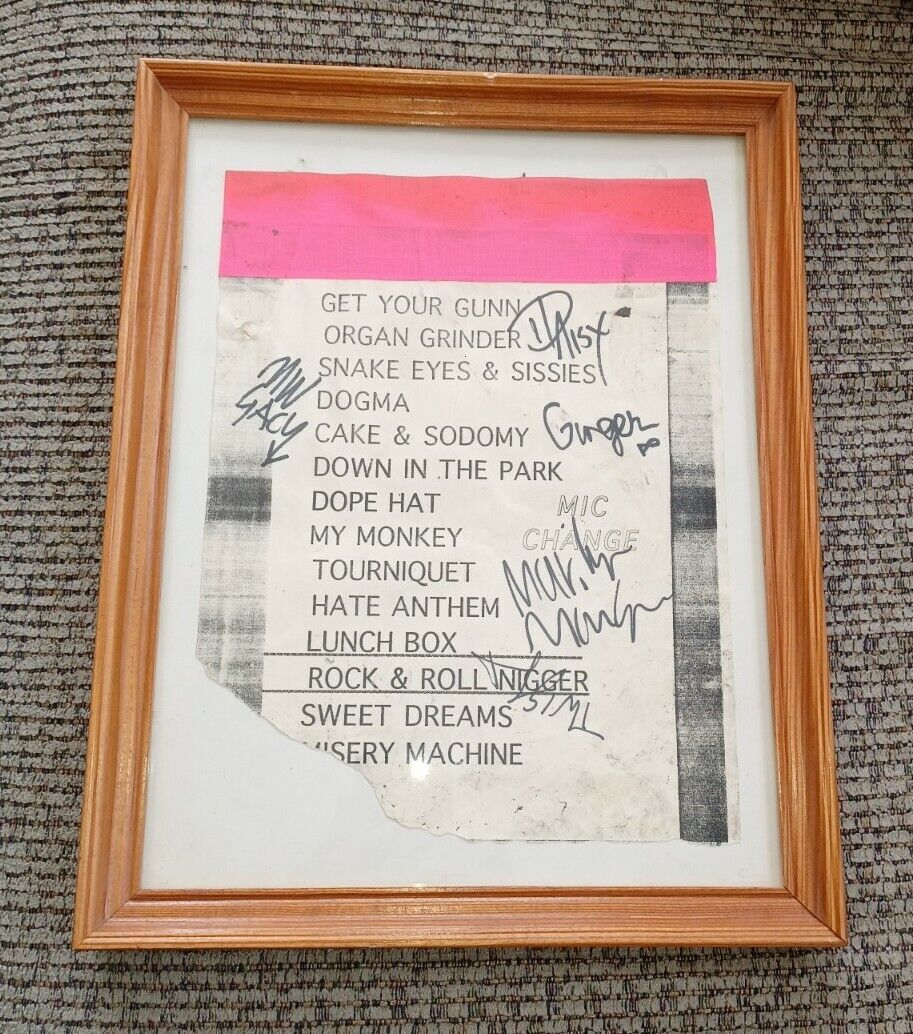 GET YOUR GUNN
DAisy
ORGAN GRINDER
SNAKE EYES & SISSIES
MW
GACY
DOGMA
CAKE & SODOMY
Ginger
DOWN IN THE PARK
DOPE HAT
MIC
CHANGE
MY MONKEY
TOURNIQUET
Marilyn
Manson
HATE ANTHEM
LUNCH BOX
ROCK & ROLL NIGGER
SWEET DREAMS
MISERY MACHINE